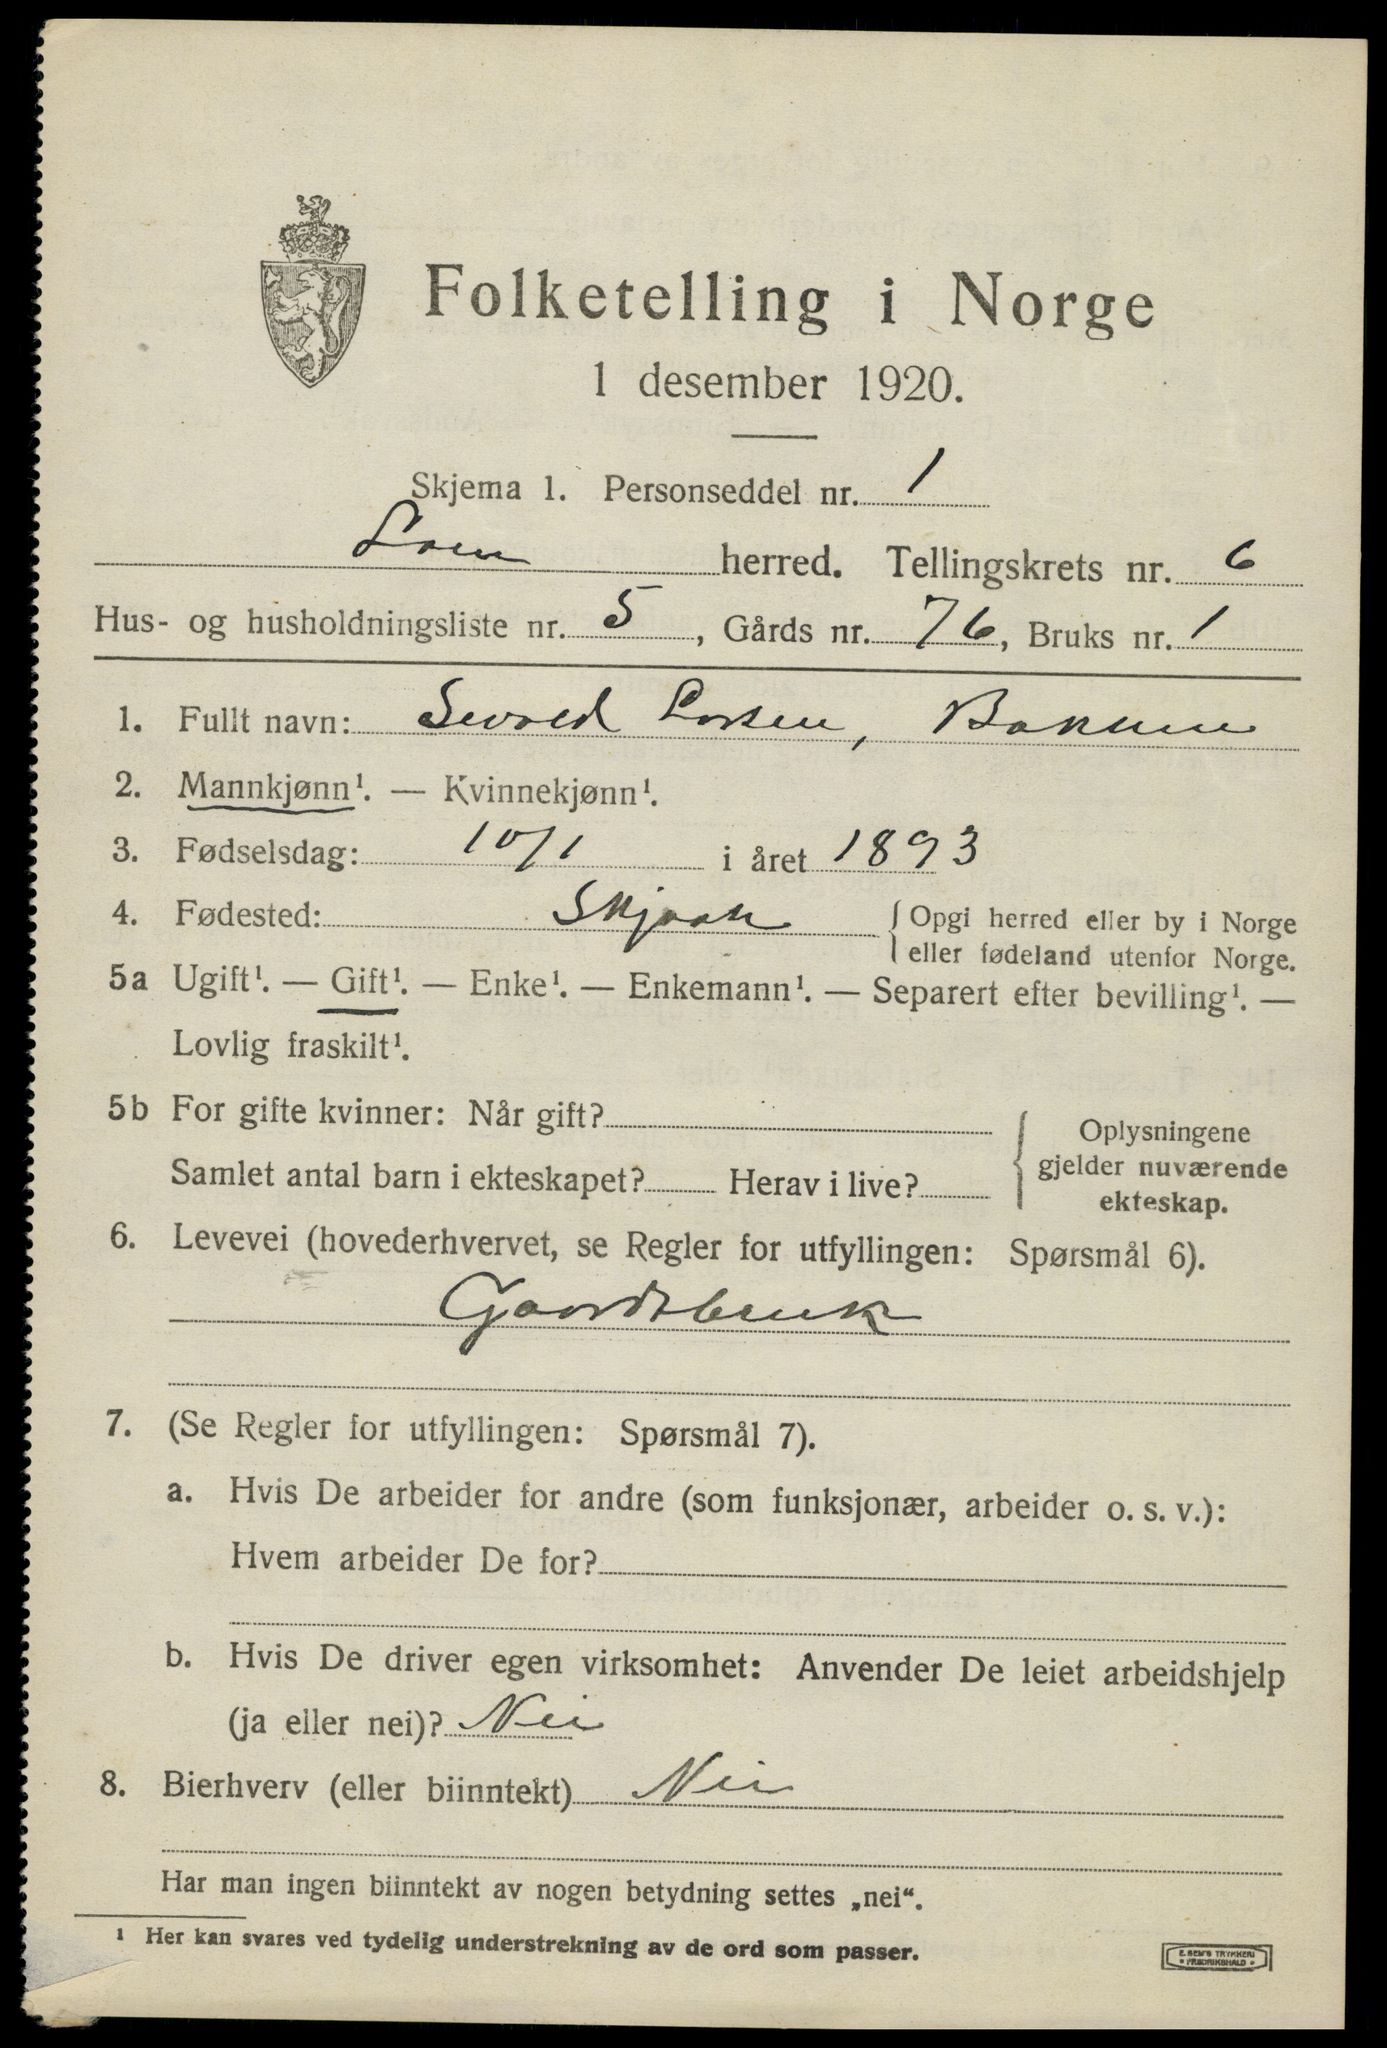 Folketelling i Norge
1 desember 1920.
Skjema 1. Personseddel nr. 1
Lom herred. Tellingskrets nr. 6
Hus- og husholdningsliste nr. 5, Gårds nr. 76, Bruks nr. 1
1. Fullt navn: Sevald Larsen, Bakken
2. Mannkjønn¹. — Kvinnekjønn¹.
3. Fødselsdag: 10/1 i året 1893
4. Fødested: Skjaak { Opgi herred eller by i Norge
eller fødeland utenfor Norge.
5a Ugift¹. — Gift¹. — Enke¹. — Enkemann¹. — Separert efter bevilling¹. —
Lovlig fraskilt¹.
5b For gifte kvinner: Når gift?
Samlet antal barn i ekteskapet? Herav i live?
{ Oplysningene
gjelder nuværende
ekteskap.
6. Levevei (hovederhvervet, se Regler for utfyllingen: Spørsmål 6).
Gaardsbruk
7. (Se Regler for utfyllingen: Spørsmål 7).
a. Hvis De arbeider for andre (som funksjonær, arbeider o. s. v.):
Hvem arbeider De for?
b. Hvis De driver egen virksomhet: Anvender De leiet arbeidshjelp
(ja eller nei)? Nei
8. Bierhverv (eller biinntekt) Nei
Har man ingen biinntekt av nogen betydning settes „nei“.
¹ Her kan svares ved tydelig understrekning av de ord som passer.
E. SEM'S TRYKKERI
• FREDRIKSHALD •